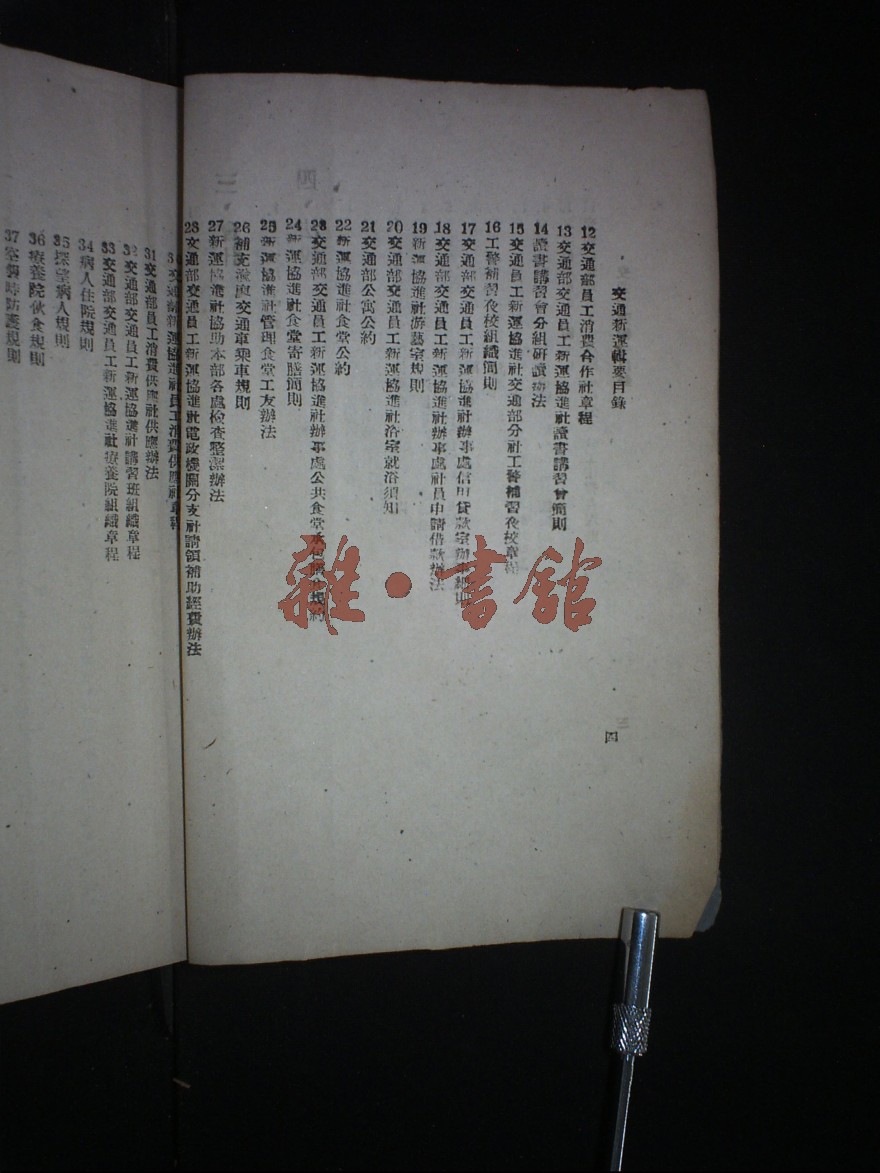 交通新運輯要目錄
12交通部員工消費合作社章程
13交通部交通員工新運協進社讀書講習會簡則
14讀書講習會分組研讀辦法
15交通員工新運協進社交通部分社工警補習夜校章程
16工警補習夜校組織簡則
17交通部交通員工新運協進社辦事處信用貸款
18交通部交通員工新運協進社辦事處社員申請借款辦法
19新運協進社游藝室規則
20交通部交通員工新運協進社浴室就浴須知
21交通部公寓公約
22新運協進社食堂公約
23交通部交通員工新運協進社辦事處公共食堂承包
24新運協進社食堂寄膳簡則
25新運協進社管理食堂工友辦法
26補充 交通車乘車規則
27新運協進社協助本部各處檢查整潔辦法
28交通部交通員工新運協進社電政機關分支社請領補助經費辦法
交通部新運協進社員工消費供應社章程
31交通部員工消費供應社供應辦法
32交通部交通員工新運協進社講習班組織章程
33交通部交通員工新運協進社療養院組織章程
34病人住院規則
35探望病人規則
36療養院伙食規則
37空襲時防護規則
四
雜·書館